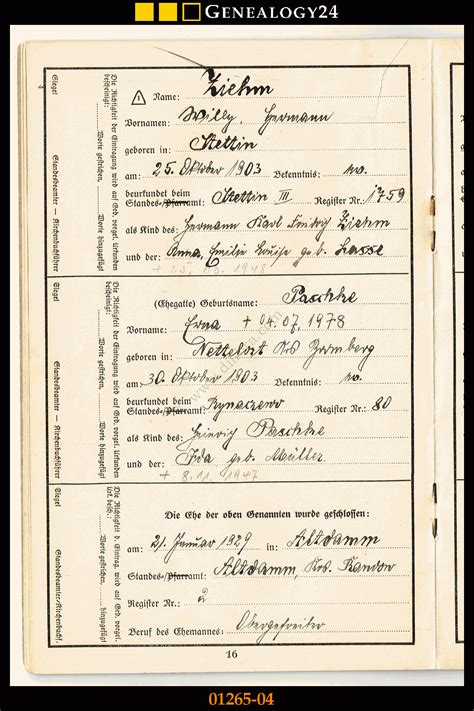 GENEALOGY24
1 Name: Ziehm
Vornamen: Willy, Hermann
geboren in: Stettin
am: 25. Oktober 1903 Bekenntnis: ev.
beurkundet beim
Standes-/Pfarramt: Stettin III Register Nr.: 1759
als Kind des: Hermann Karl Friedrich Ziehm
und der: Anna, Emilie Louise geb. Lasse
1948
(Ehegatte) Geburtsname: Paschke
Vorname: Erna + 04.07.1978
geboren in:
am: 30. Oktober 1903 Bekenntnis: ev.
beurkundet beim
Standes-/Pfarramt: Rynarzewo Register Nr.: 80
als Kind des: Heinrich Paschke
und der: Ida geb. Müller
+ 8.11.1947
Die Ehe der oben Genannten wurde geschlossen:
am: 21. Januar 1929 in: Altdamm
Standes-/Pfarramt: Altdamm, Krs. Randow
Register Nr.: 2
Beruf des Ehemannes: Obergefreiter
16
Siegel
Standesbeamter — Kirchenbuchführer
Die Richtigkeit der Eintragung wird auf Grd. vorgel. Urkunden
bescheinigt:
Worte gestrichen, Worte hinzugefügt
Siegel
Standesbeamter — Kirchenbuchführer
Die Richtigkeit der Eintragung wird auf Grd. vorgel. Urkunden
bescheinigt:
Worte gestrichen, Worte hinzugefügt
Siegel
Standesbeamter-Kirchenbuchf.
Die Richtigkeit d. Eintrag. wird auf Grd. vorgel.
Urk. besch.:
Worte gestrichen, hinzugefügt
01265-04